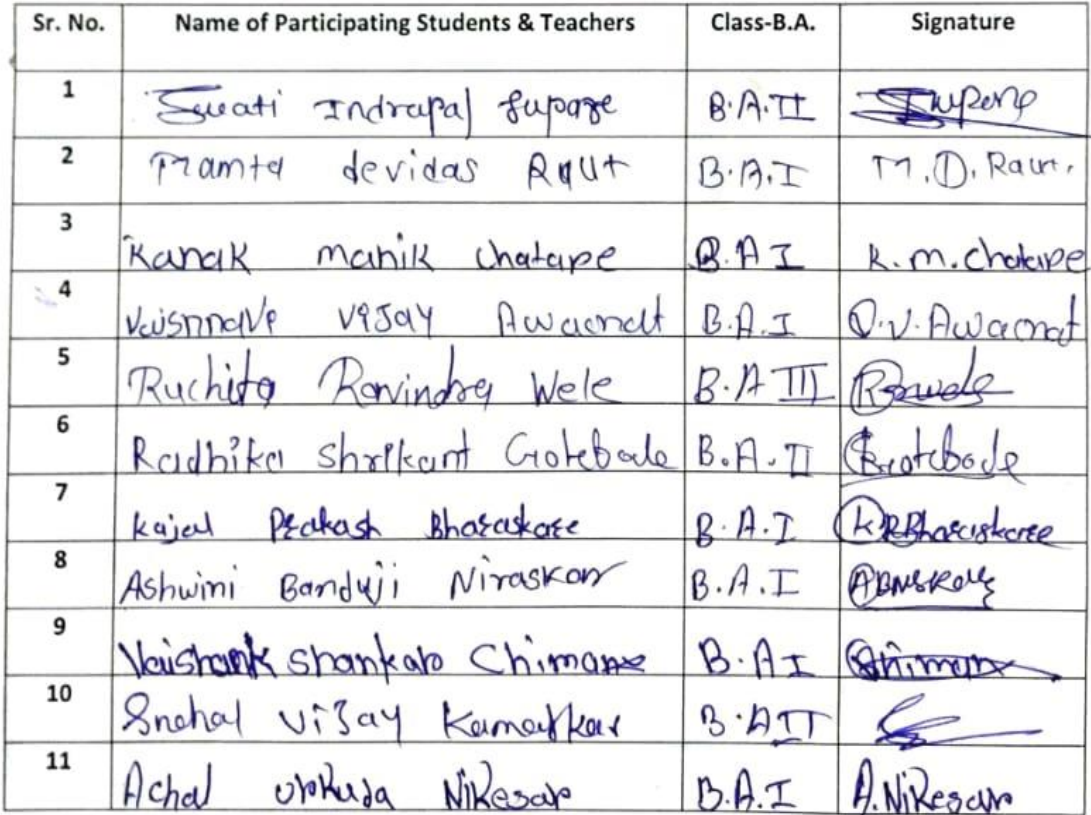 Sr. No. Name of Participating Students & Teachers Class-B.A. Signature
1 Swati Indrapal Supare B.A.II
2 Mamta devidas Raut B.A.I M.D.Raut.
3 Kanak manik Chatape B.A I K.m.Chatape
4 Vaisnnave vijay Awacnat B.A.I V.V.Awacnat
5 Ruchita Ravindra Wele B.A III
6 Radhika Shrikant Gotebode B.A.II Gotebode
7 Kajal Prakash Bharaskare B.A.I K.P.Bharaskare
8 Ashwini Banduji Niraskar B.A.I
9 Shankar Chiman B.A I Chiman
10 Snehal vijay B.A II
11 Achal urkuda Nikesar B.A.I A.Nikesar